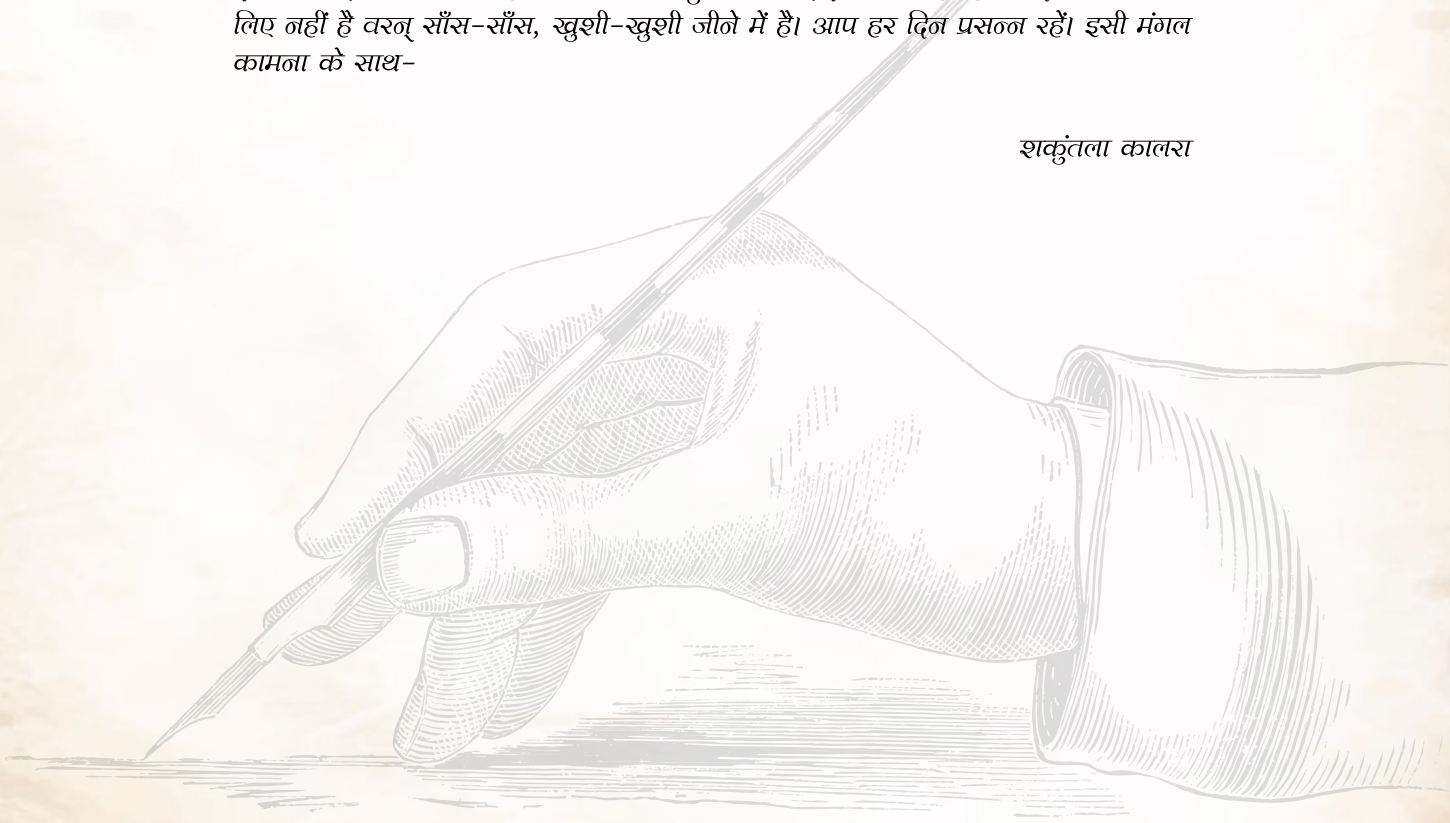 लिए नहीं है वरन् साँस-साँस, खुशी-खुशी जीने में है। आप हर दिन प्रसन्न रहें। इसी मंगल
कामना के साथ-
शकुंतला कालरा